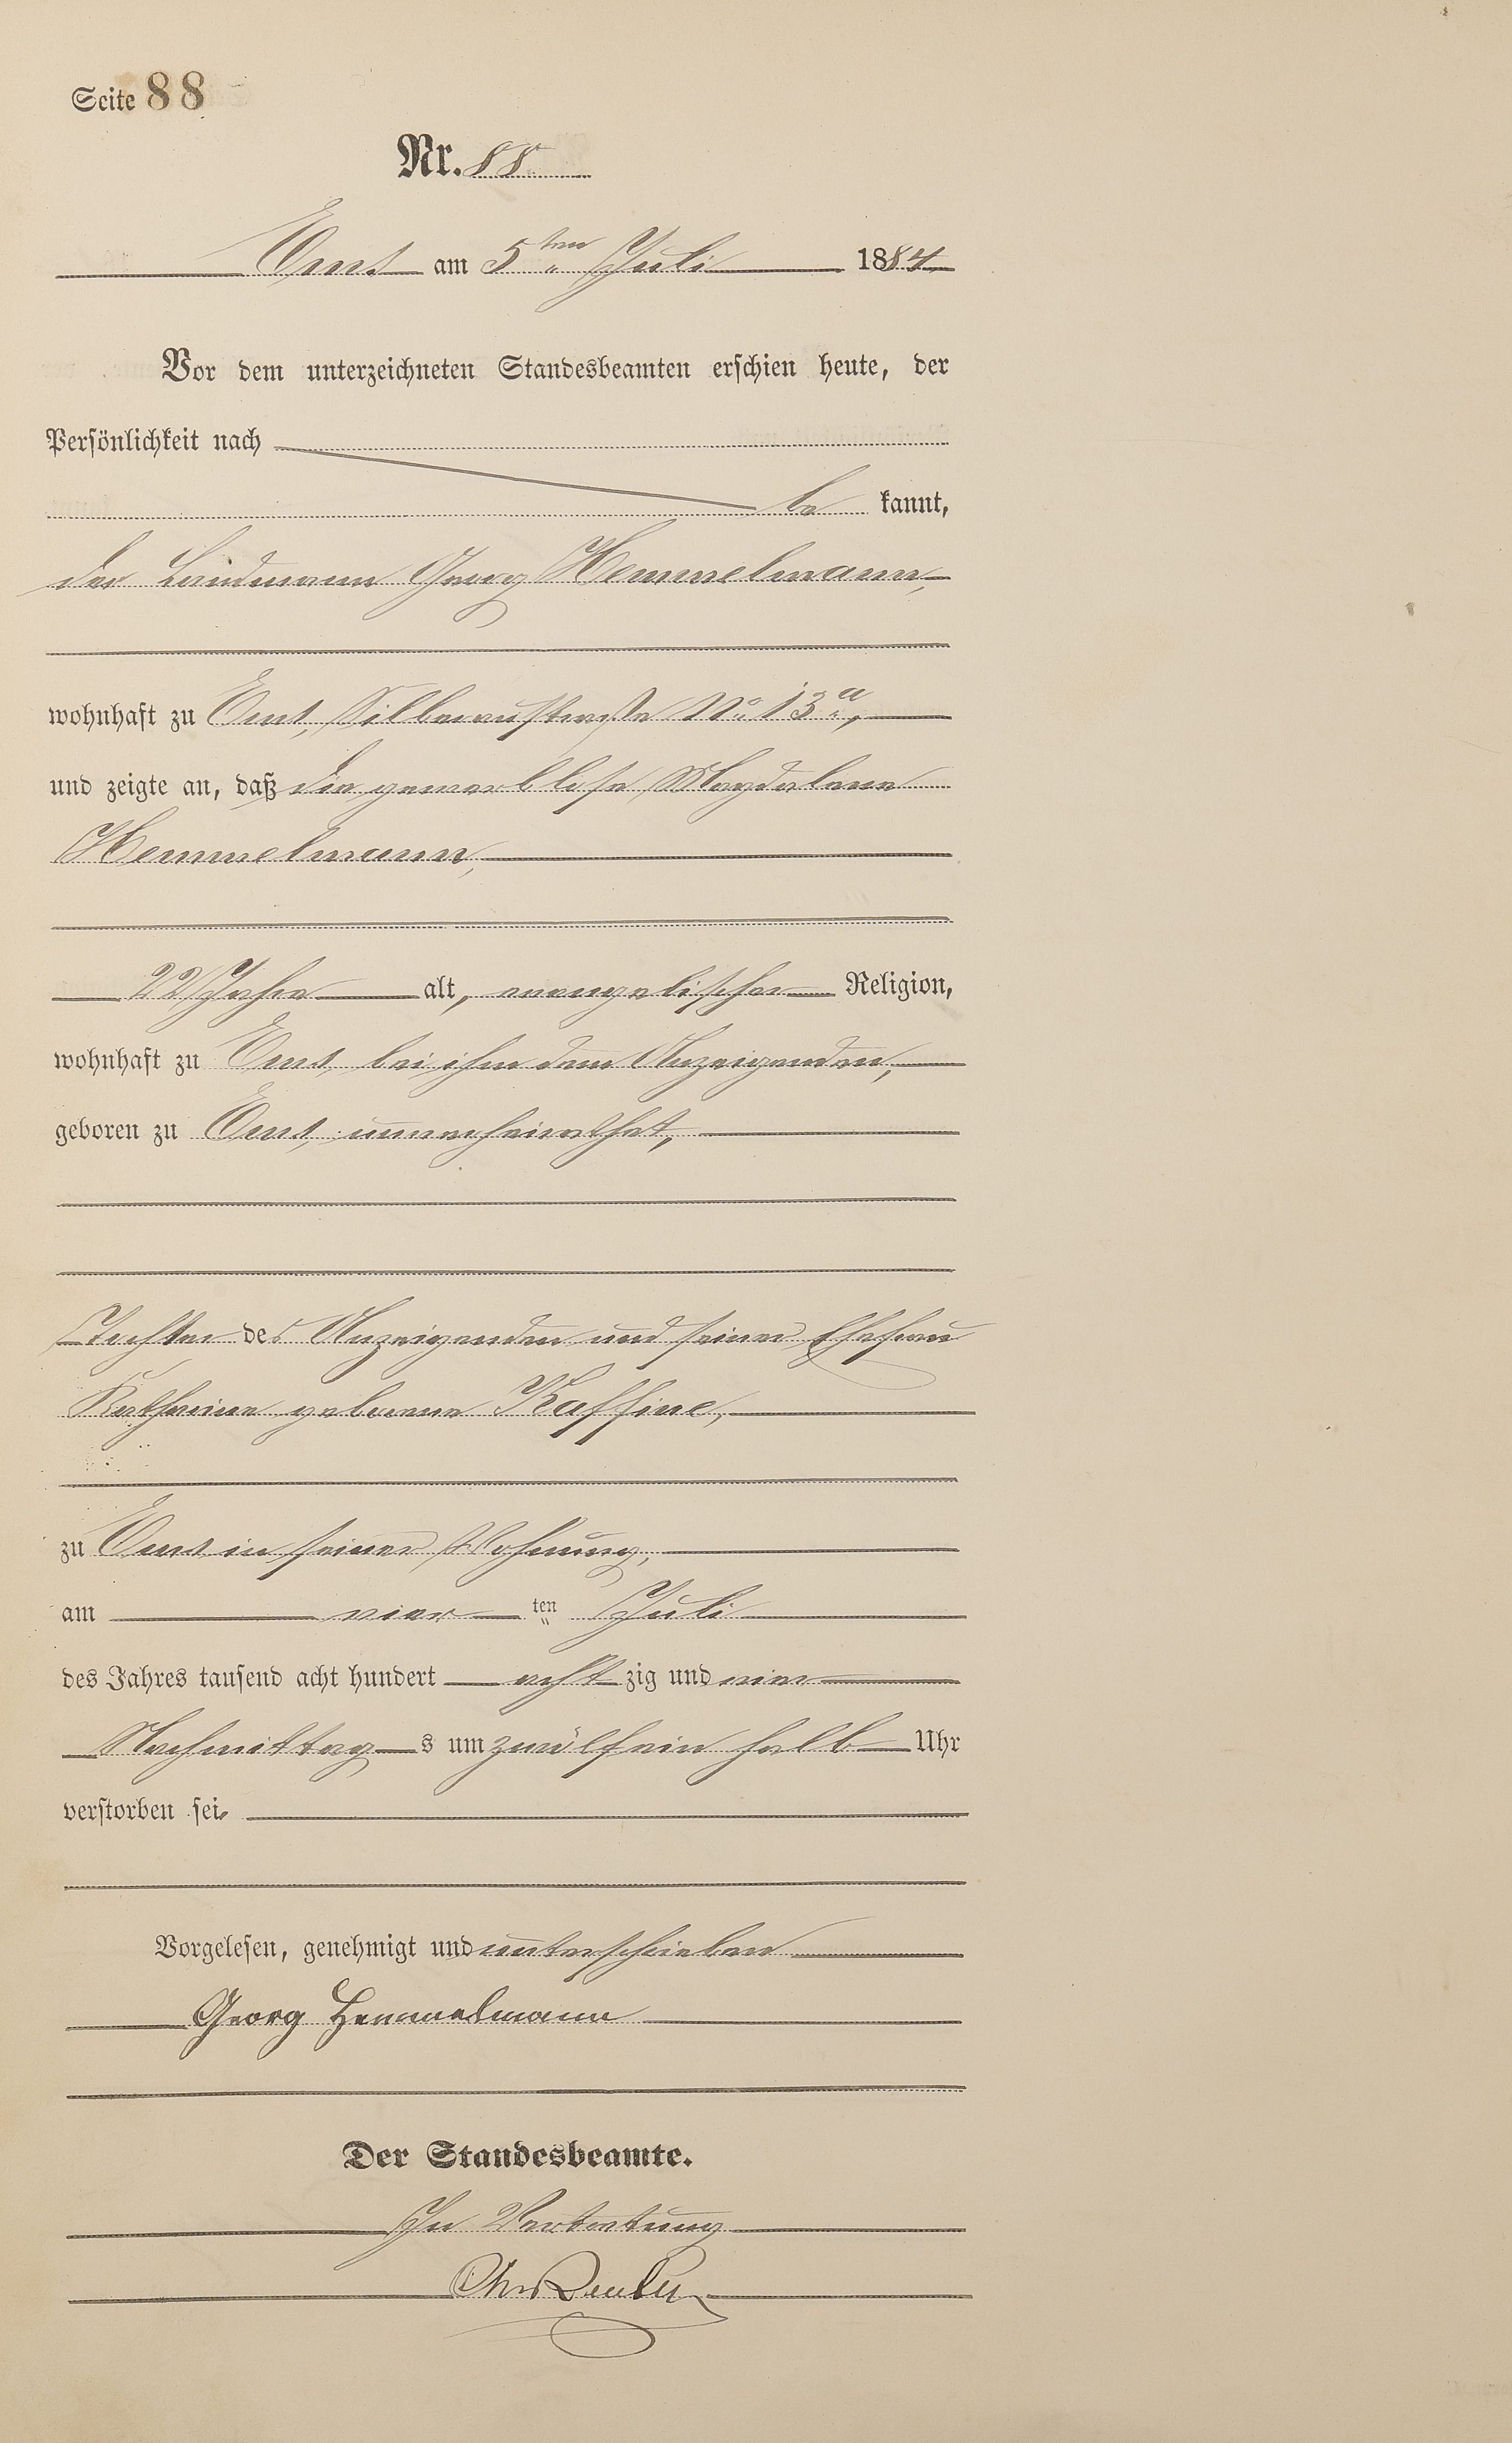 Seite 88
Nr. 88.
Ems am 5ten Juli 1884
Vor dem unterzeichneten Standesbeamten erschien heute, der
Persönlichkeit nach
be kannt,
der Landmann Georg Hemmelmann,
wohnhaft zu Ems, Silberaustraße No. 13a,
und zeigte an, daß die gewerblose Magdalene
Hemmelmann,
22 Jahre alt, evangelischer Religion,
wohnhaft zu Ems, bei ihm dem Anzeigenden,
geboren zu Ems, unverheirathet,
Tochter des Anzeigenden und seiner Ehefrau
Katharine geborene Kaffine,
zu Ems in seiner Wohnung,
am vier ten Juli
des Jahres tausend acht hundert acht zig und vier
Nachmittag s um zwölf ein halb Uhr
verstorben sei.
Vorgelesen, genehmigt und unterschrieben
Georg Hemmelmann
Der Standesbeamte.
In Vertretung